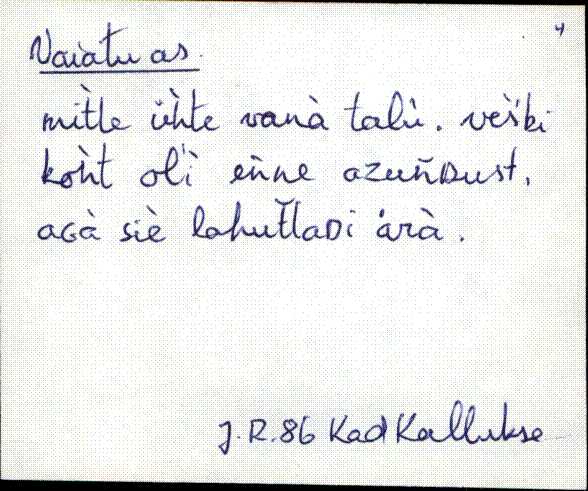 4
Vaiatu as.
mìt̀le ǜh̀te vanà talù. veš́ki
koh̀t ol'ì en̆ne azun̆Dust,
aGà siè lahut̆laDi ärà.
J.R.86 Kad Kallukse